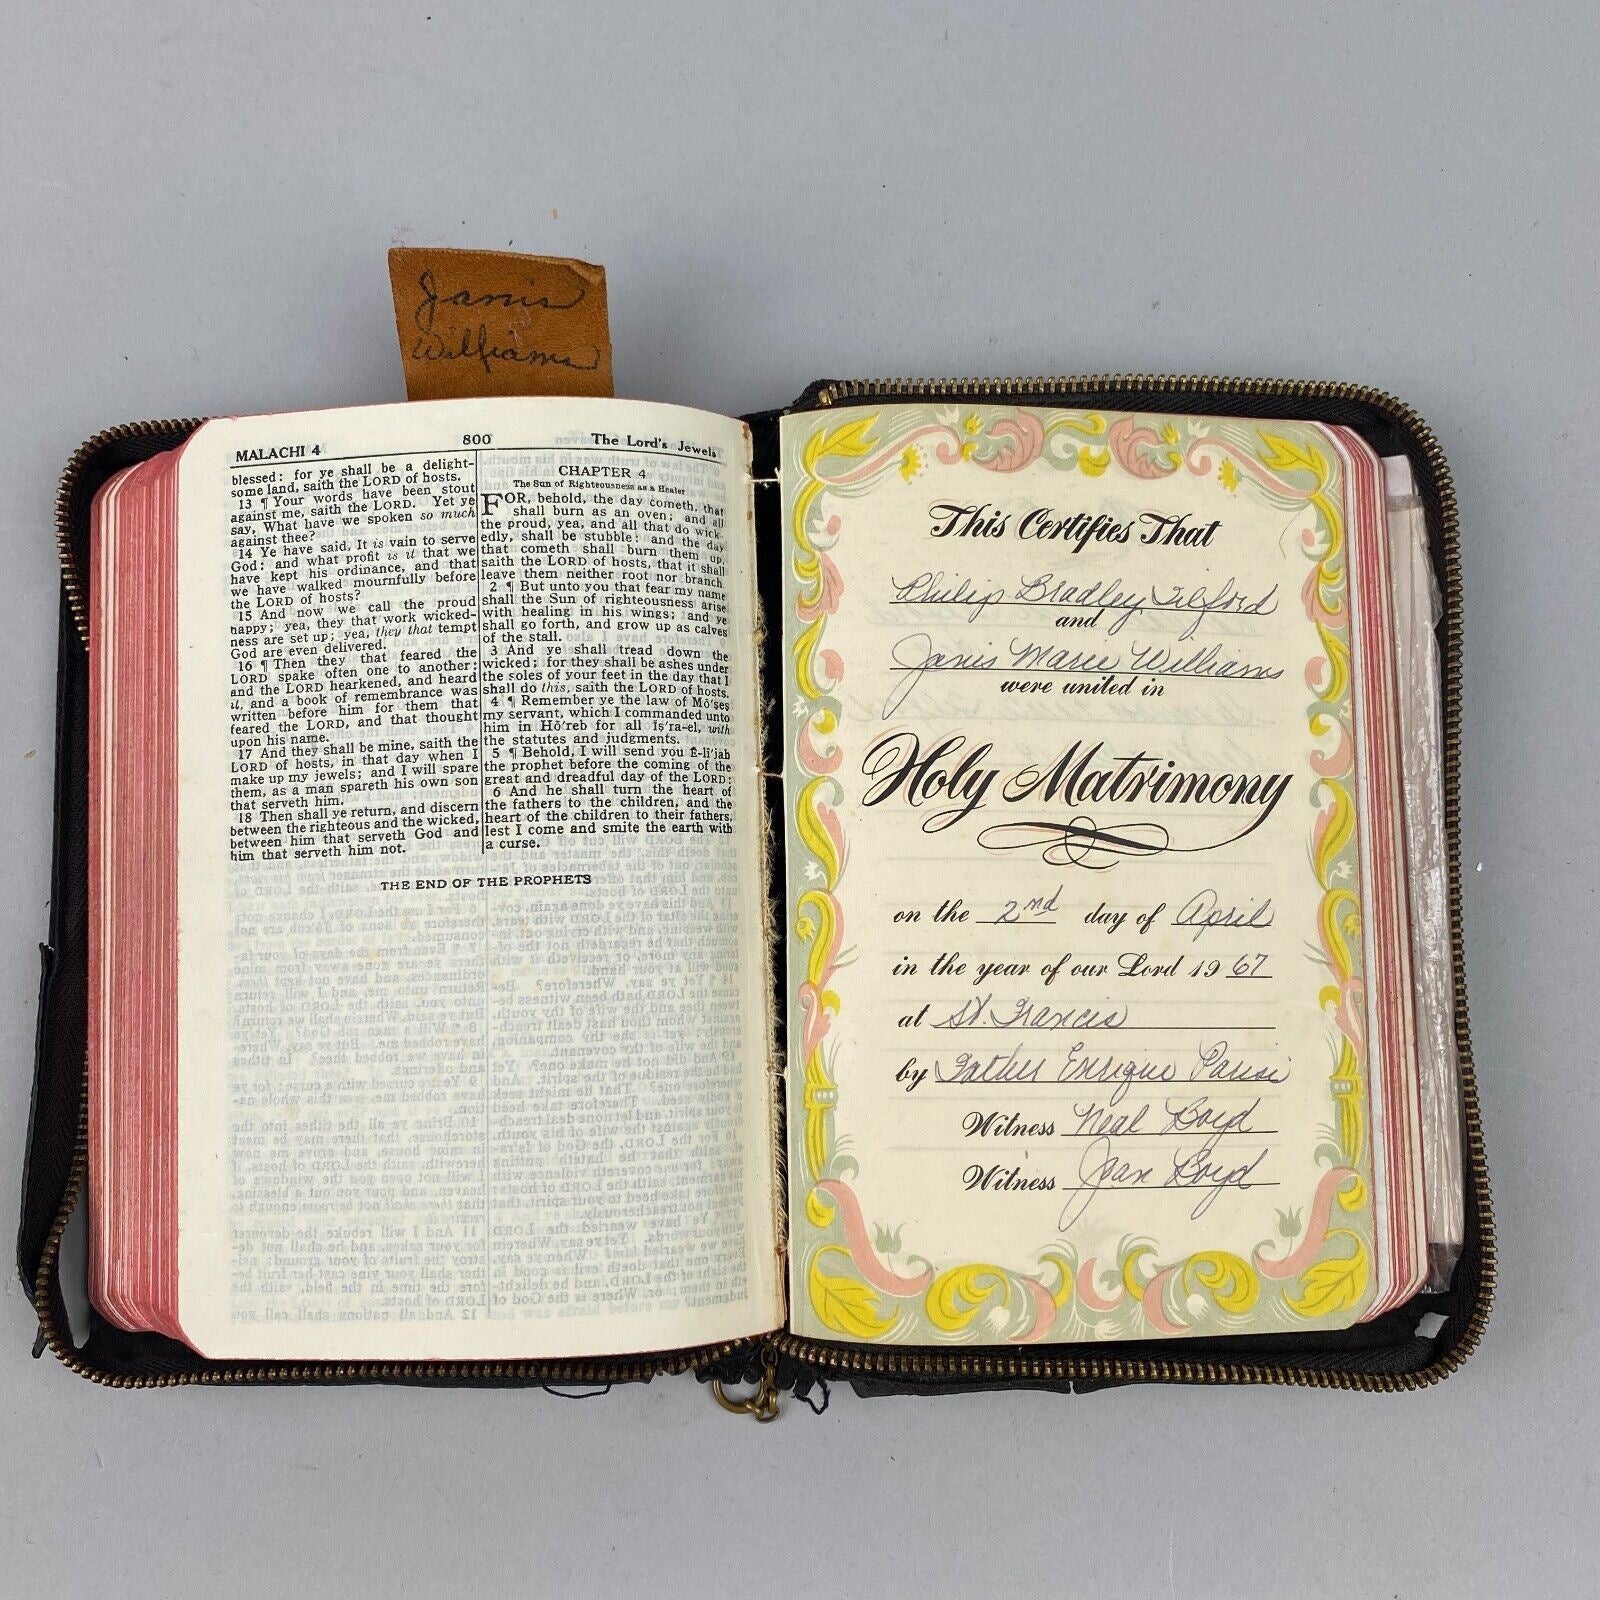 Janis
Williams
MALACHI 4 800 The Lord's Jewels
blessed: for ye shall be a delight-
some land, saith the LORD of hosts.
13 ¶ Your words have been stout
against me, saith the LORD. Yet ye
say, What have we spoken so much
against thee?
14 Ye have said, It is vain to serve
God: and what profit is it that we
have kept his ordinance, and that
we have walked mournfully before
the LORD of hosts?
15 And now we call the proud
happy; yea, they that work wicked-
ness are set up; yea, they that tempt
God are even delivered.
16 ¶ Then they that feared the
LORD spake often one to another:
and the LORD hearkened, and heard
it, and a book of remembrance was
written before him for them that
feared the LORD, and that thought
upon his name.
17 And they shall be mine, saith the
LORD of hosts, in that day when I
make up my jewels; and I will spare
them, as a man spareth his own son
that serveth him.
18 Then shall ye return, and discern
between the righteous and the wicked,
between him that serveth God and
him that serveth him not.
CHAPTER 4
The Sun of Righteousness as a Healer
FOR, behold, the day cometh, that
shall burn as an oven; and all
the proud, yea, and all that do wick-
edly, shall be stubble: and the day
that cometh shall burn them up,
saith the LORD of hosts, that it shall
leave them neither root nor branch.
2 ¶ But unto you that fear my name
shall the Sun of righteousness arise
with healing in his wings; and ye
shall go forth, and grow up as calves
of the stall.
3 And ye shall tread down the
wicked; for they shall be ashes under
the soles of your feet in the day that I
shall do this, saith the LORD of hosts.
4 ¶ Remember ye the law of Mō'ses
my servant, which I commanded unto
him in Hō'reb for all Iṣ'ra-el, with
the statutes and judgments.
5 ¶ Behold, I will send you Ē-lī'jah
the prophet before the coming of the
great and dreadful day of the LORD:
6 And he shall turn the heart of
the fathers to the children, and the
heart of the children to their fathers,
lest I come and smite the earth with
a curse.
THE END OF THE PROPHETS
This Certifies That
Philip Bradley Tilford
and
Janis Marie Williams
were united in
Holy Matrimony
on the 2nd day of April
in the year of our Lord 1967
at St. Francis
by Father Enrique Parisi
Witness Neal Boyd
Witness Jean Boyd